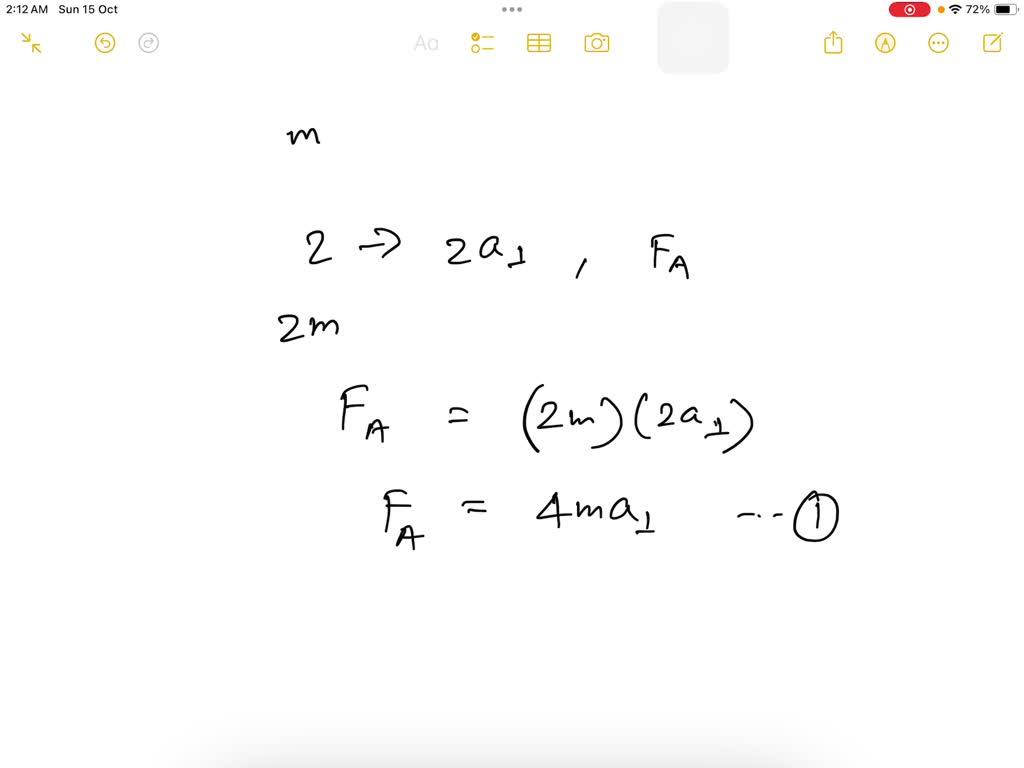 2:12 AM Sun 15 Oct 72%
Aa
m
2 → 2a₁ , F_A
2m
F_A = (2m)(2a₁)
F_A = 4ma₁ --- ①